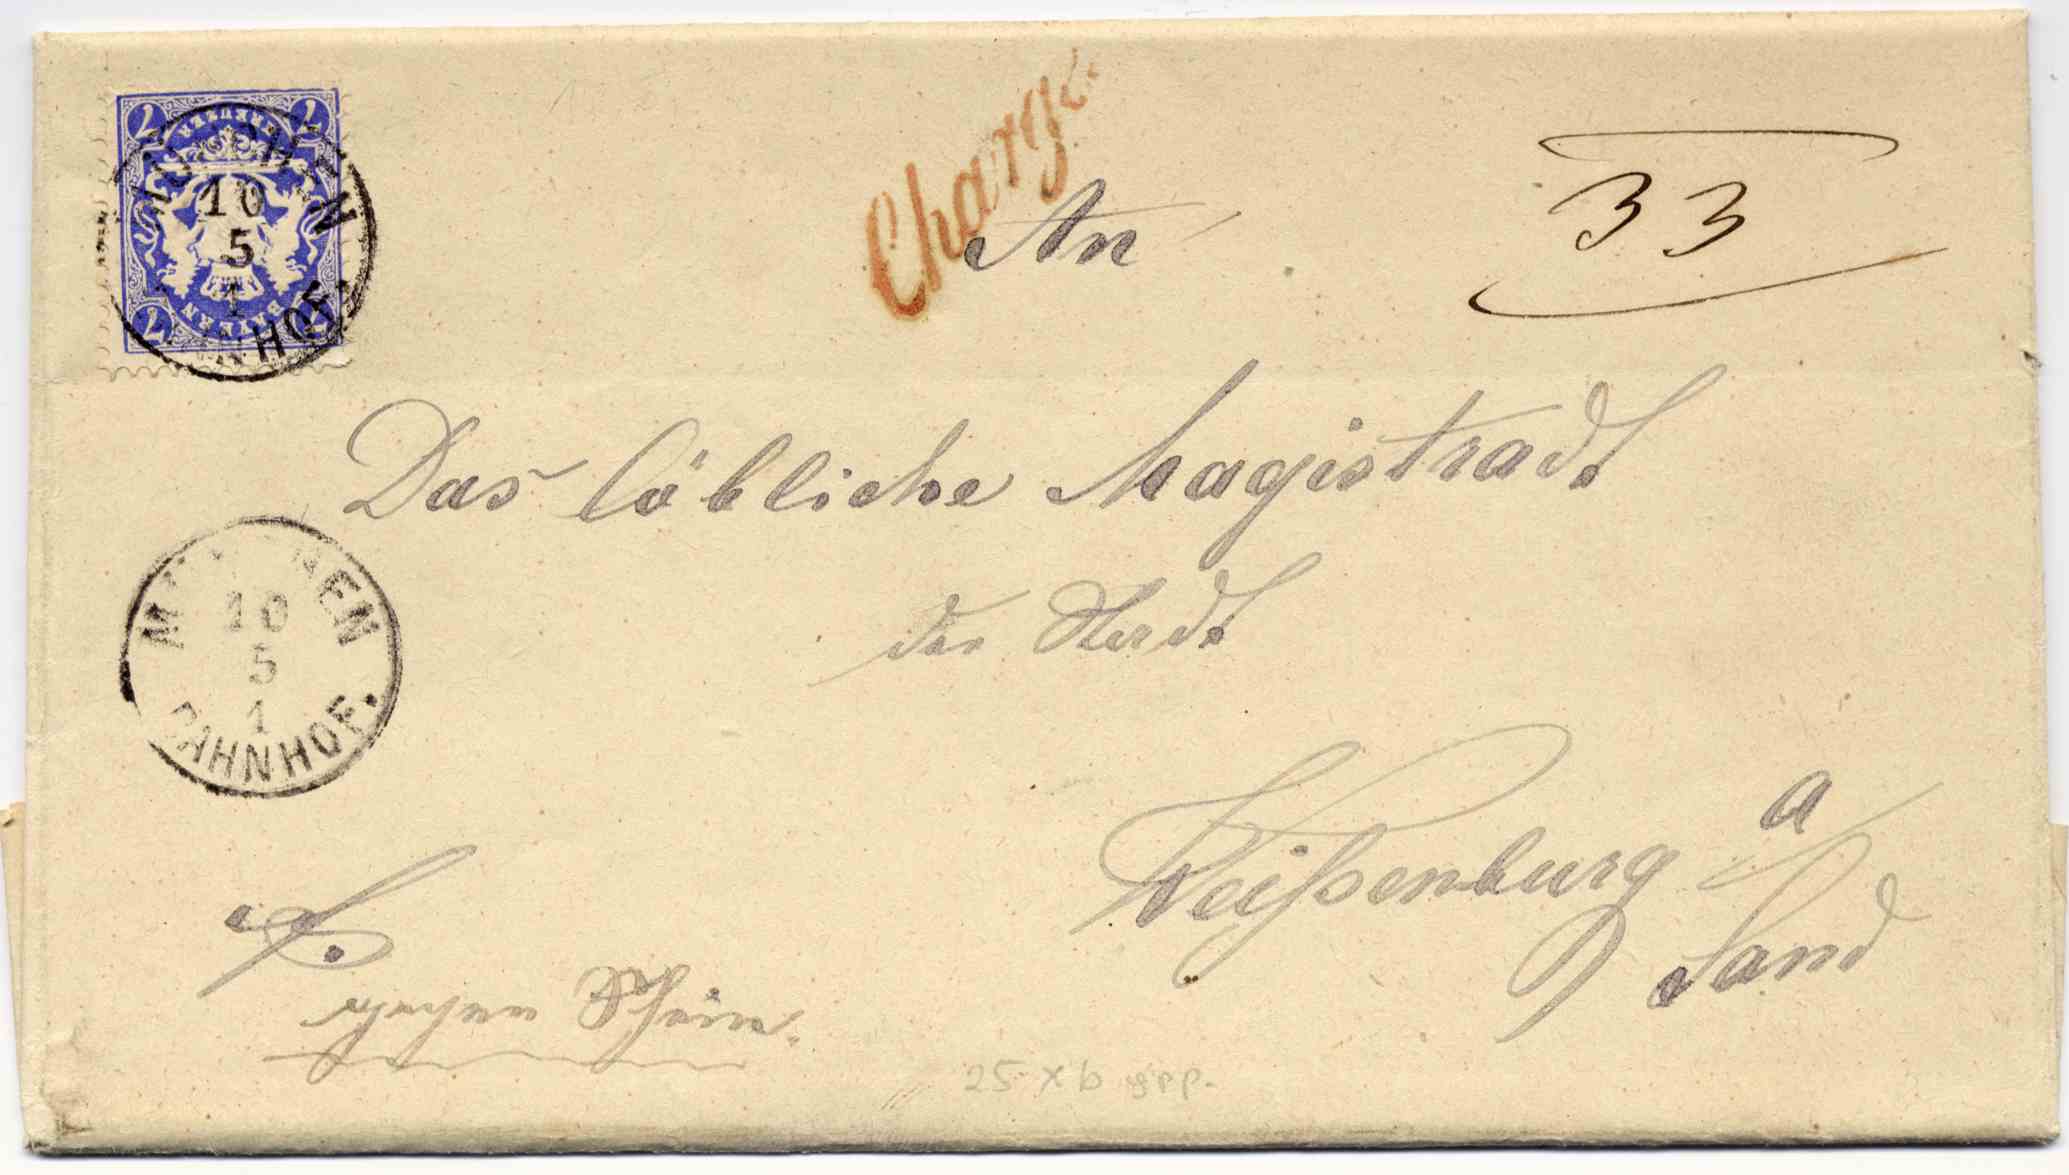 7 KREUZER 7
BAYERN
7 7
MÜNCHEN
10
5
1
BAHNHOF.
Chargé.
33
An
Das löbliche Magistradt
der Stadt
Weißenburg a/
Sand
MÜNCHEN
10
5
1
BAHNHOF.
gegen Schein.
25 x b gpp.